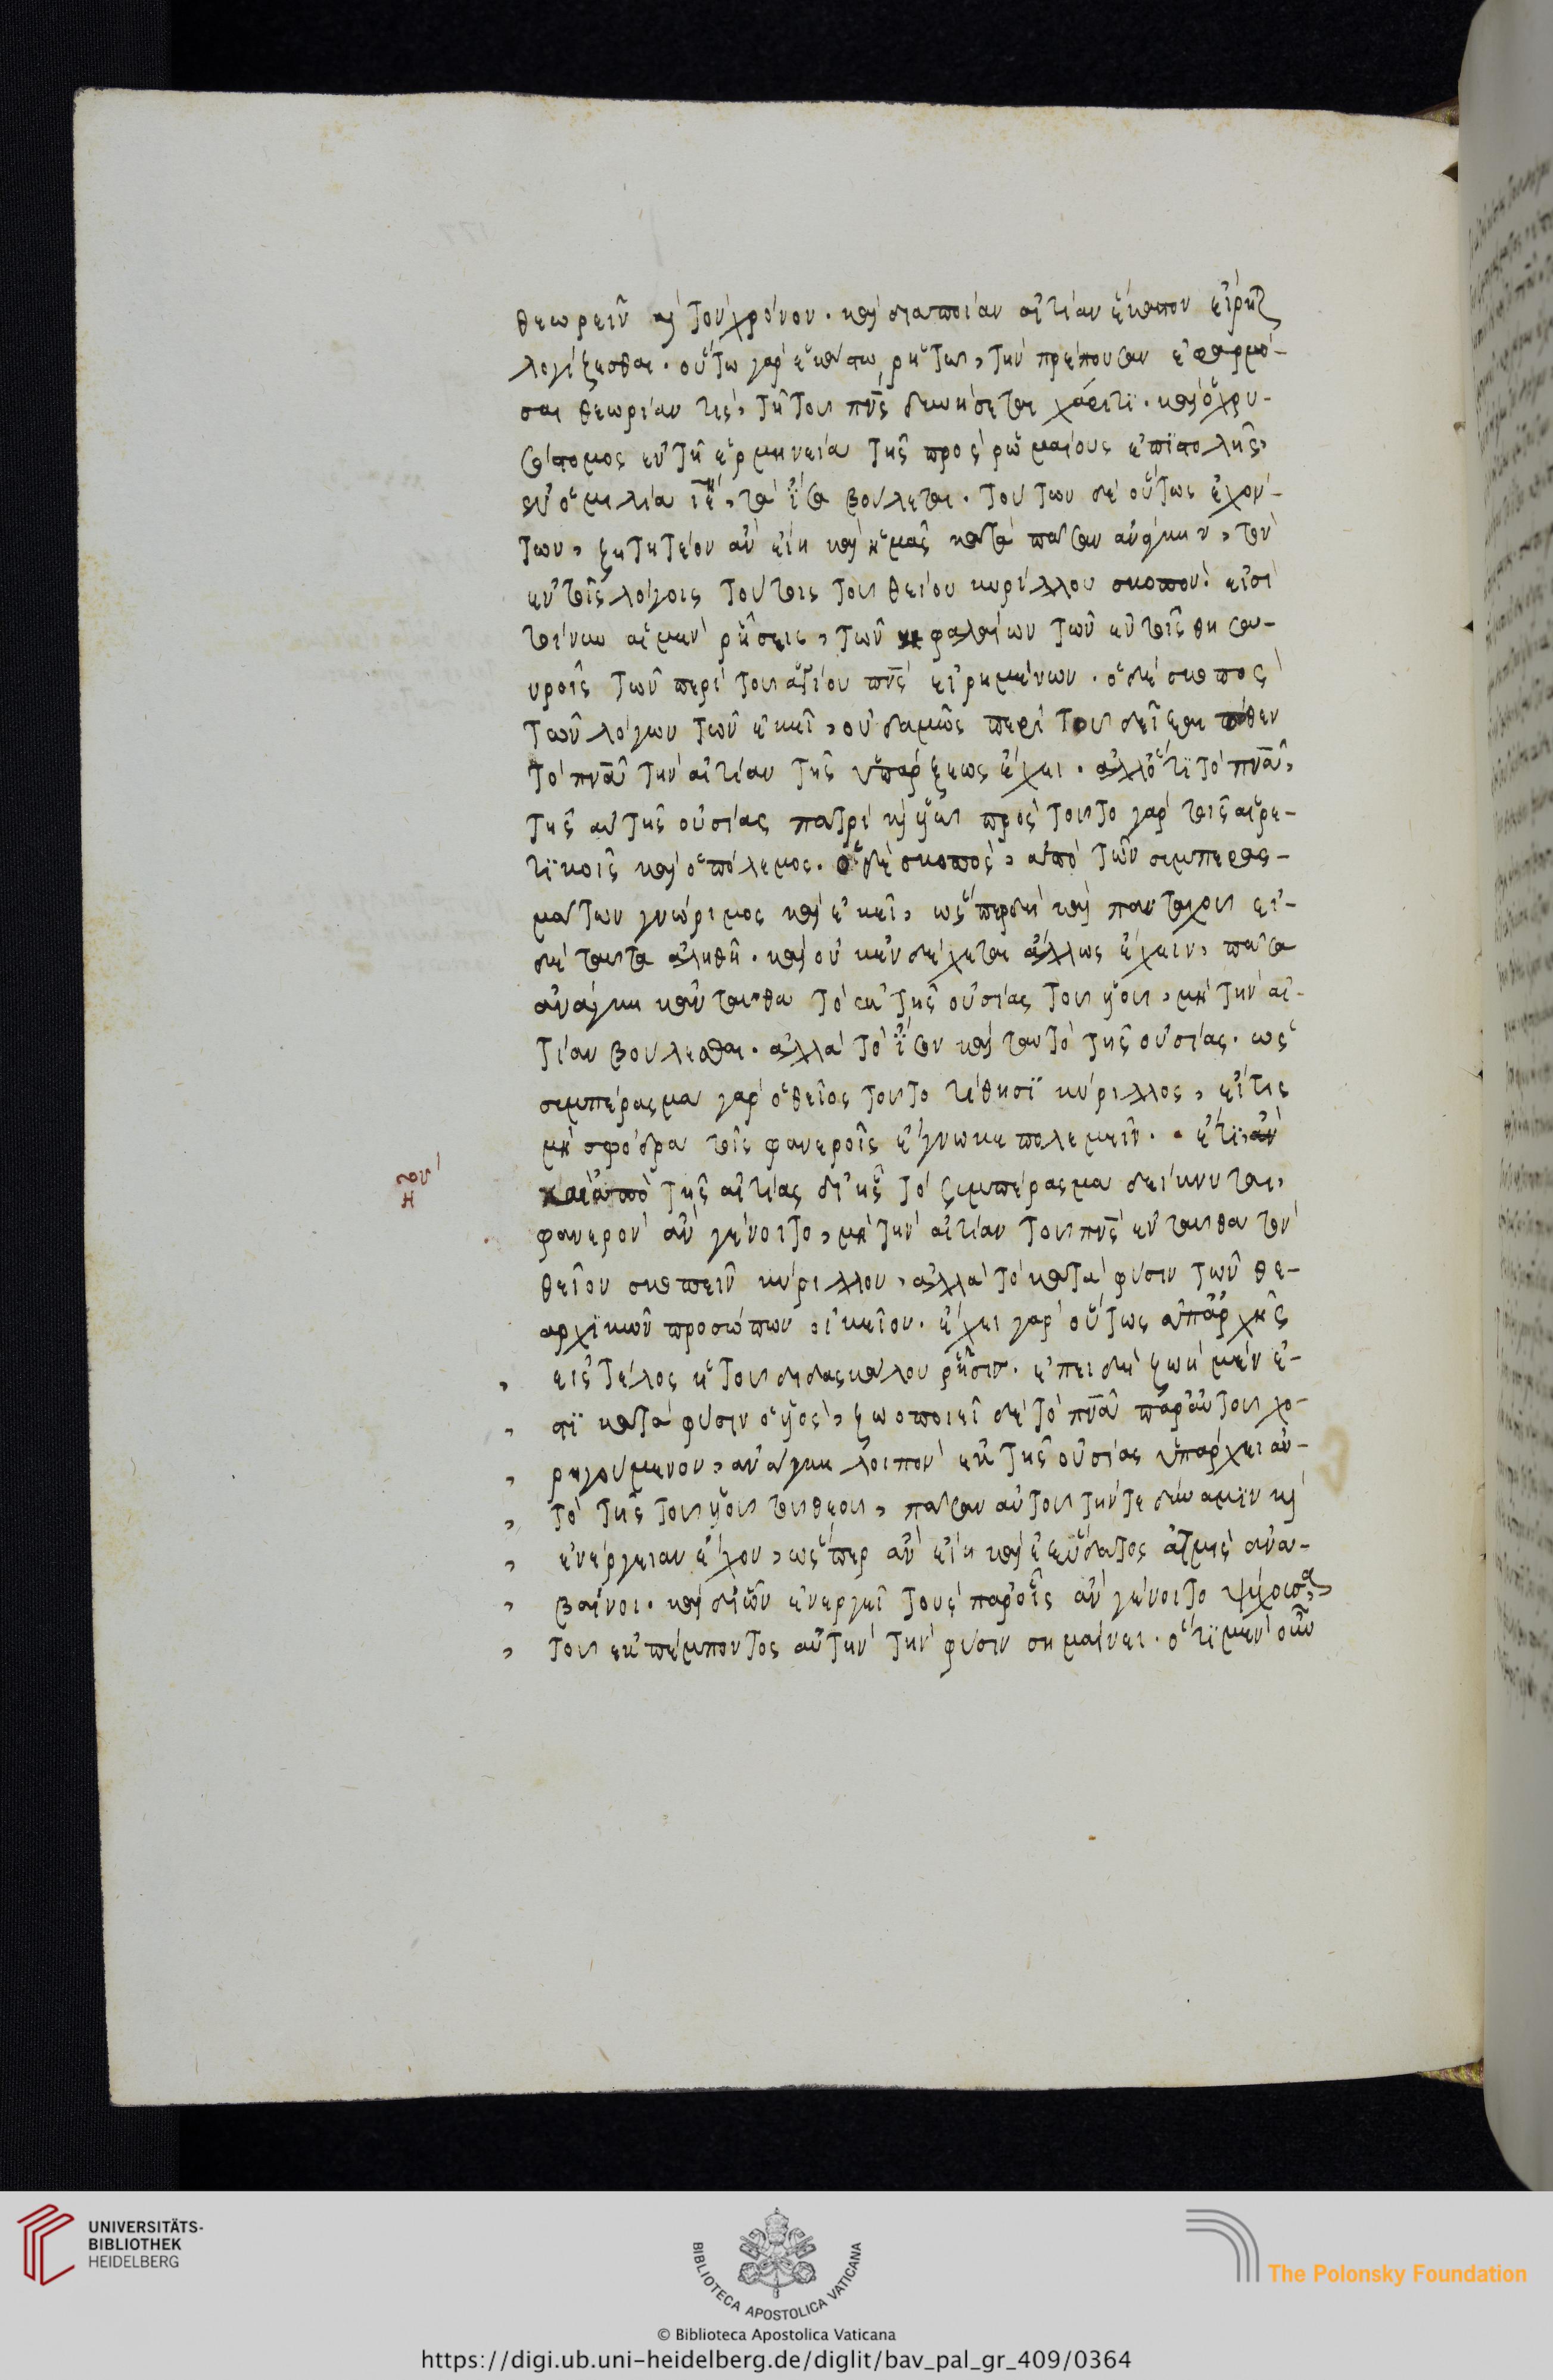 θεωρεῖν καὶ τὸν χρόνον. καὶ διὰ ποίαν αἰτίαν ἕκαστον εἴρηται
λογίζεσθαι. οὕτω γὰρ ἑκάστω ῥητῶ, τὴν πρέπουσαν ἐφαρμό-
σαι θεωρίαν τίς, τῆ τοῦ πνς δυνήσεται χάριτι. καὶ ὁ χρυ-
σόστομος ἐν τῆ ἑρμηνεία τῆς πρὸς ῥωμαίους ἐπιστολῆς,
ἐν ὁμιλία, τὰ ἴσα βούλεται. τούτων δὲ οὕτως ἐχόν-
των, ζητητέον ἂν εἴη καὶ ἡμᾶς κατὰ πᾶσαν ἀνάγκην, τὸν
ἐν τοῖς λόγοις τούτοις τοῦ θείου κυρίλλου σκοπόν. εἰσὶ
τοίνυν αἱ μὲν ῥήσεις, τῶν κεφαλαίων τῶν ἐν τοῖς θησαυ-
υροῖς τῶν περὶ τοῦ ἁγίου πνς εἰρημένων. ὁ δὲ σκοπὸς
τῶν λόγων τῶν ἐκεῖ, οὐδαμῶς περὶ τοῦ δεῖξαι πόθεν
τὸ πνα τὴν αἰτίαν τῆς ὑπάρξεως ἔχει. ἀλλ' ὅτι τὸ πνα,
τῆς αὐτῆς οὐσίας πατρὶ καὶ υἱῶ πρὸς τοῦτο γὰρ τοῖς αἱρε-
τικοῖς καὶ ὁ πόλεμος. ὁ δὲ σκοπὸς, ἀπὸ τῶν συμπερασ-
μάτων γνώριμος καὶ ἐκεῖ, ὥσπερ δὴ καὶ πανταχοῦ εἰ-
δὲ ταῦτα ἀληθῆ. καὶ οὐκ ἐνδέχεται ἄλλως ἔχειν, πᾶσα
ἀνάγκη κἀνταῦθα τὸ ἐκ τῆς οὐσίας τοῦ υἱοῦ, μὴ τὴν αἰ-
τίαν βούλεσθαι. ἀλλὰ τὸ ἴσον καὶ ταυτὸ τῆς οὐσίας. ὡς
συμπέρασμα γὰρ ὁ θεῖος τοῦτο τίθησι κύριλλος, εἴ τις
μὴ σφόδρα τοῖς φανεροῖς ἔγνωκε πολεμεῖν. ἔτι ἂν
καὶ ἀπὸ τῆς αἰτίας δι' ἧς τὸ συμπέρασμα δείκνυται,
φανερὸν ἂν γένοιτο, μὴ τὴν αἰτίαν τοῦ πνς ἐνταῦθα τὸν
θεῖον σκοπεῖν κύριλλον, ἀλλὰ τὸ κατὰ φύσιν τῶν θε-
αρχικῶν προσώπων οἰκεῖον. ἔχει γὰρ οὕτως ἀπ' ἀρχῆς
εἰς τέλος ἡ τοῦ διδασκάλου ῥῆσις. ἐπειδὴ ζωὴ μὲν ἐ-
στι κατὰ φύσιν ὁ υἱὸς, ζωοποιεῖ δὲ τὸ πνα παρ' αὐτοῦ χο-
ρηγούμενον, ἀνάγκη λοιπὸν ἐκ τῆς οὐσίας ὑπάρχει αὐ-
τὸ τῆς τοῦ υἱοῦ τοῦ θεοῦ, πᾶσαν αὐτοῦ τήν τε δύναμιν καὶ
ἐνέργειαν ἔχον, ὥσπερ ἂν εἴη καὶ ἐξ ὕδατος ἀτμὶς ἀνα-
βαίνοι. καὶ δι' ὧν ἐνεργεῖ τοὺς παρ' οἷς ἂν γένοιτο ψύχουσα,
τοῦ ἐκπέμποντος αὐτὴν τὴν φύσιν σημαίνει. ὅτι μὲν οὖν
UNIVERSITÄTS-
BIBLIOTHEK
HEIDELBERG
BIBLIOTECA APOSTOLICA VATICANA
The Polonsky Foundation
© Biblioteca Apostolica Vaticana
https://digi.ub.uni-heidelberg.de/diglit/bav_pal_gr_409/0364